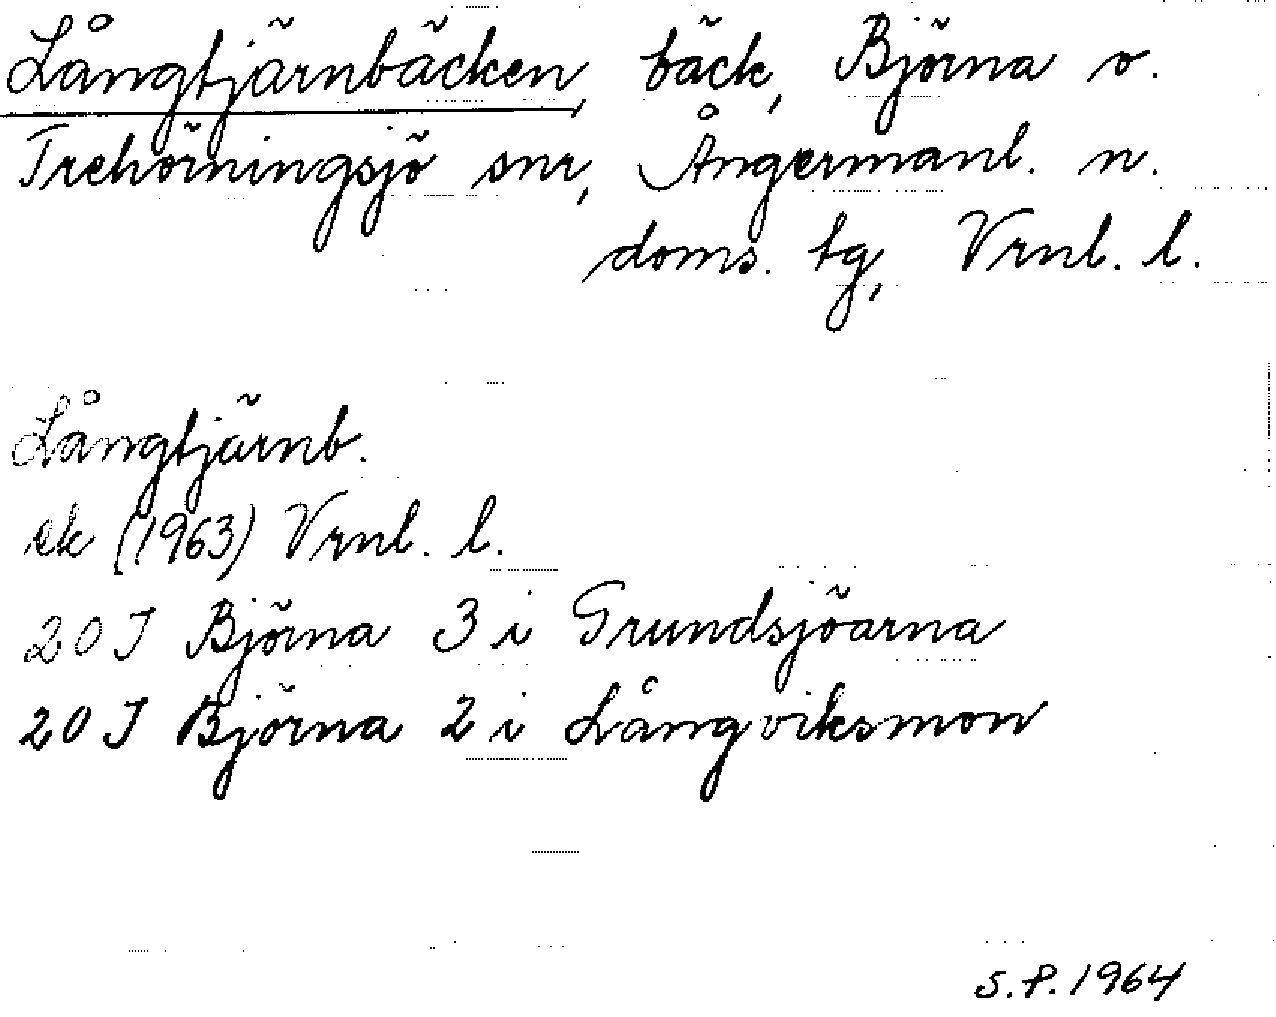 Långtjärnbäcken, bäck, Björna o.
Trehörningsjö snr, Ångermanl. n.
doms. tg, Vrnl. l.
Långtjärnb.
ek (1963) Vrnl. l.
20 J Björna 3 i Grundsjöarna
20 J Björna 2 i Långviksmon
S.P. 1964